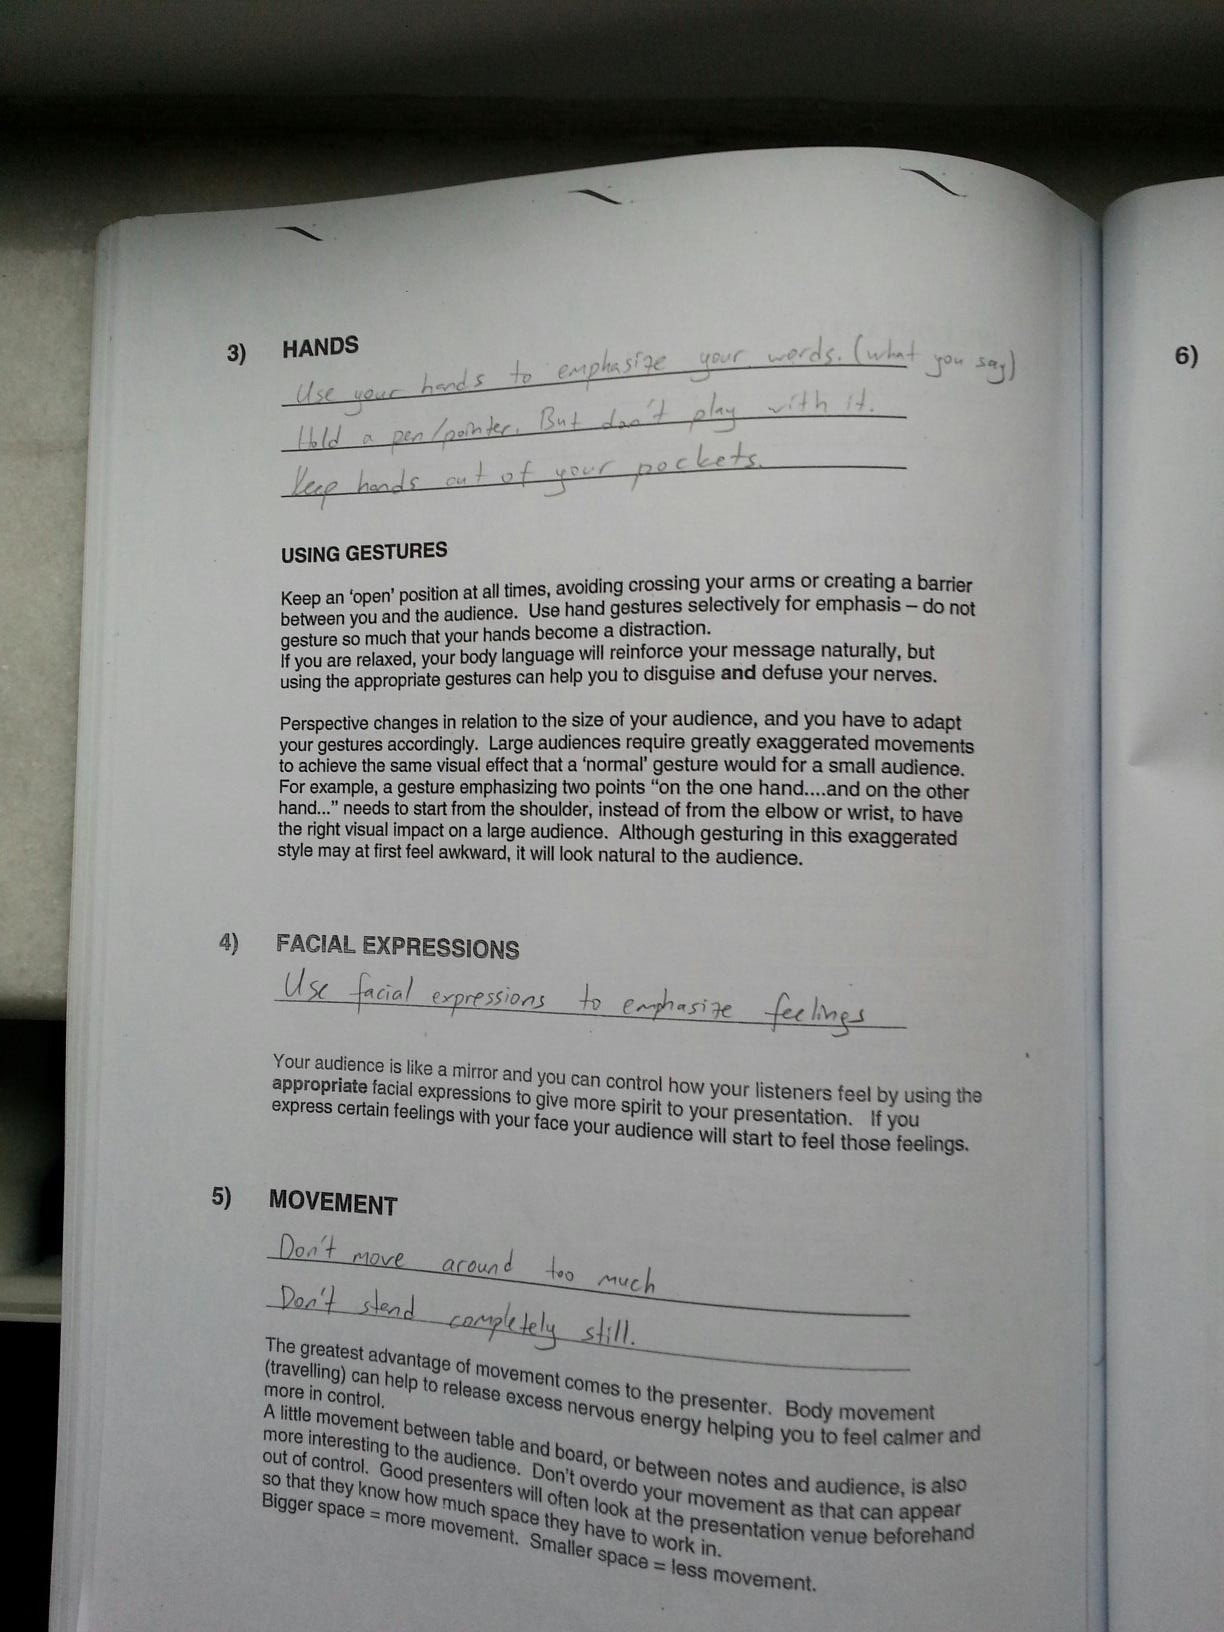 3) HANDS
Use your hands to emphasize your words. (what you say)
Hold a pen/pointer. But don't play with it.
Keep hands out of your pockets.
USING GESTURES
Keep an 'open' position at all times, avoiding crossing your arms or creating a barrier
between you and the audience. Use hand gestures selectively for emphasis – do not
gesture so much that your hands become a distraction.
If you are relaxed, your body language will reinforce your message naturally, but
using the appropriate gestures can help you to disguise and defuse your nerves.
Perspective changes in relation to the size of your audience, and you have to adapt
your gestures accordingly. Large audiences require greatly exaggerated movements
to achieve the same visual effect that a 'normal' gesture would for a small audience.
For example, a gesture emphasizing two points "on the one hand....and on the other
hand..." needs to start from the shoulder, instead of from the elbow or wrist, to have
the right visual impact on a large audience. Although gesturing in this exaggerated
style may at first feel awkward, it will look natural to the audience.
4) FACIAL EXPRESSIONS
Use facial expressions to emphasize feelings
Your audience is like a mirror and you can control how your listeners feel by using the
appropriate facial expressions to give more spirit to your presentation. If you
express certain feelings with your face your audience will start to feel those feelings.
5) MOVEMENT
Don't move around too much
Don't stend completely still.
The greatest advantage of movement comes to the presenter. Body movement
(travelling) can help to release excess nervous energy helping you to feel calmer and
more in control.
A little movement between table and board, or between notes and audience, is also
more interesting to the audience. Don't overdo your movement as that can appear
out of control. Good presenters will often look at the presentation venue beforehand
so that they know how much space they have to work in.
Bigger space = more movement. Smaller space = less movement.
6)